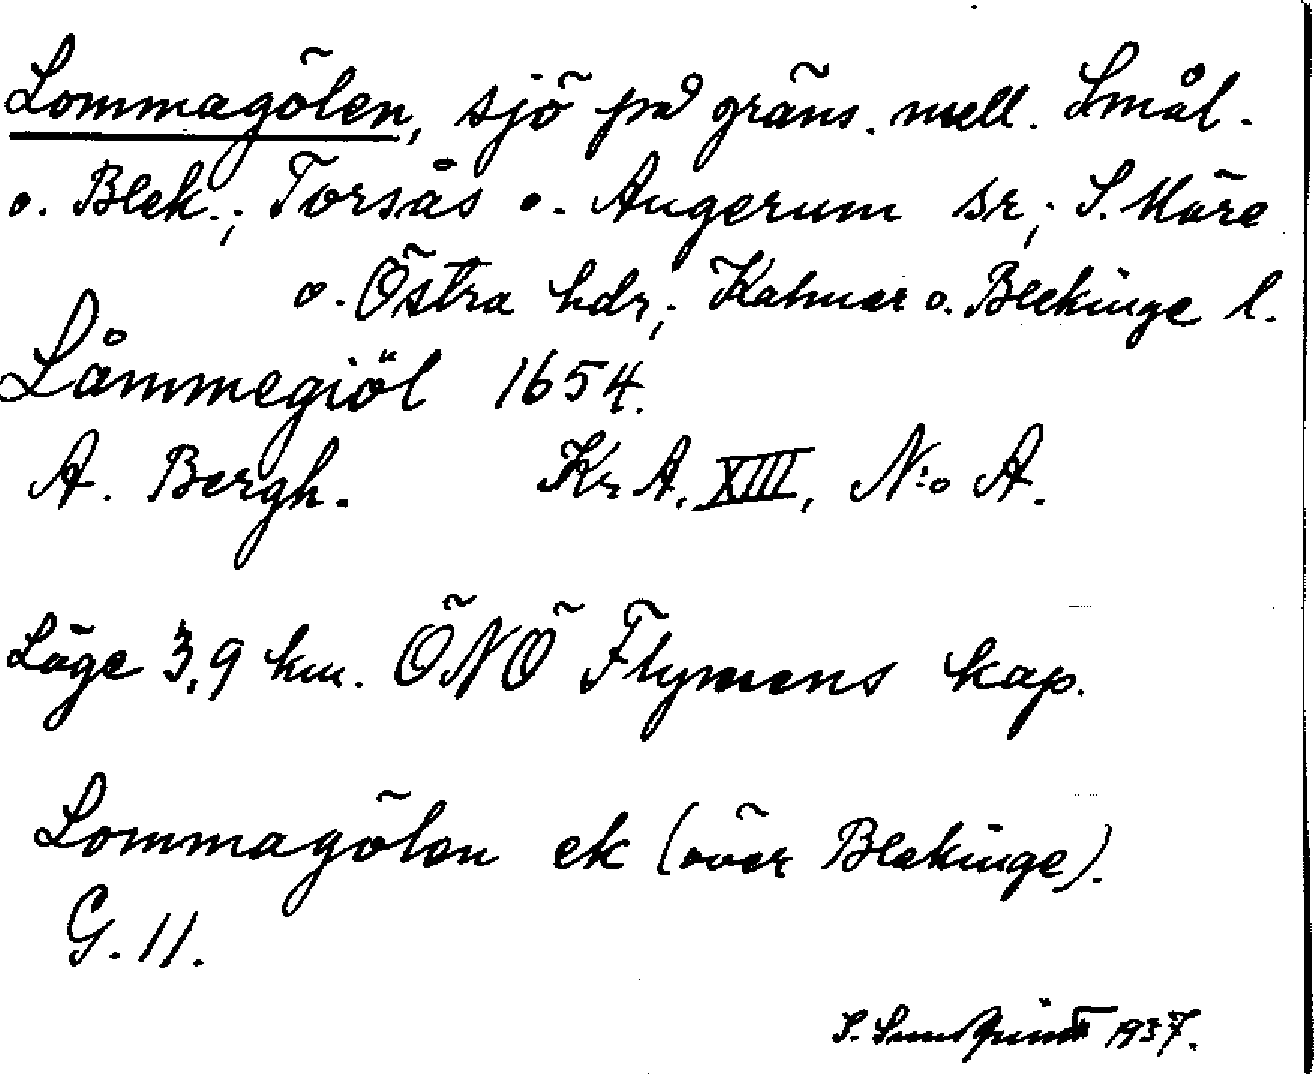 Lommagölen, sjö på gräns. mell. Smål.
o. Blek.; Torsås o. Augerum sr; S. Möre
o. Östra hdr; Kalmar o. Blekinge l.
Låmmegiöl 1654.
A. Bergh. Kr A. XIII, N:o A.
Läge 3,9 km. ÖNÖ Flymens kap.
Lommagölen ek (över Blekinge).
G. 11.
S. 1937.